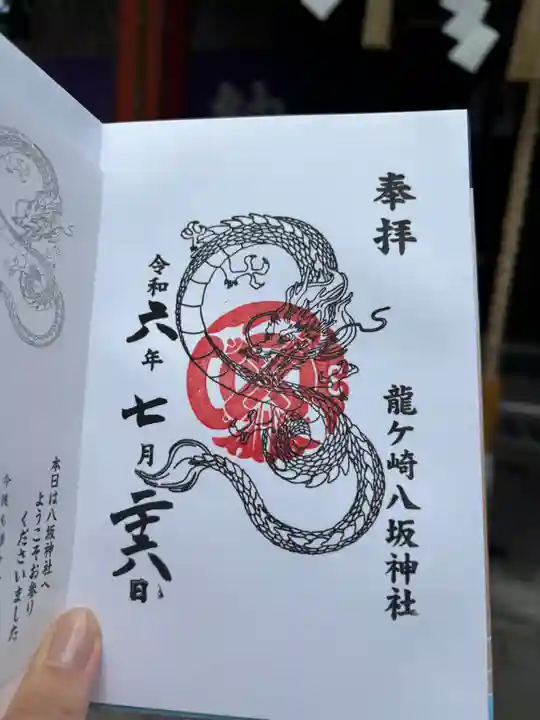 奉拝
龍ケ崎八坂神社
令和六年七月二十六日
本日は八坂神社へ
ようこそお参り
くださいました